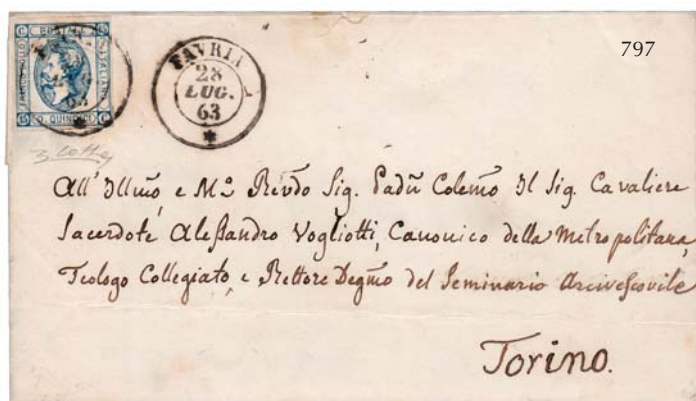 797
FRANCO BOLLO
POSTALE
ITALIANO
C. QUINDICI
15 C
FAVRIA
28
LUG.
63
All' Illmo, e Mo Revdo Sig. Padn Colemo Il Sig. Cavaliere
Sacerdote Aleßandro Vogliotti, Canonico della Metropolitana,
Teologo Collegiato, e Rettore Degmo del Seminario Arcivescovile
Torino.